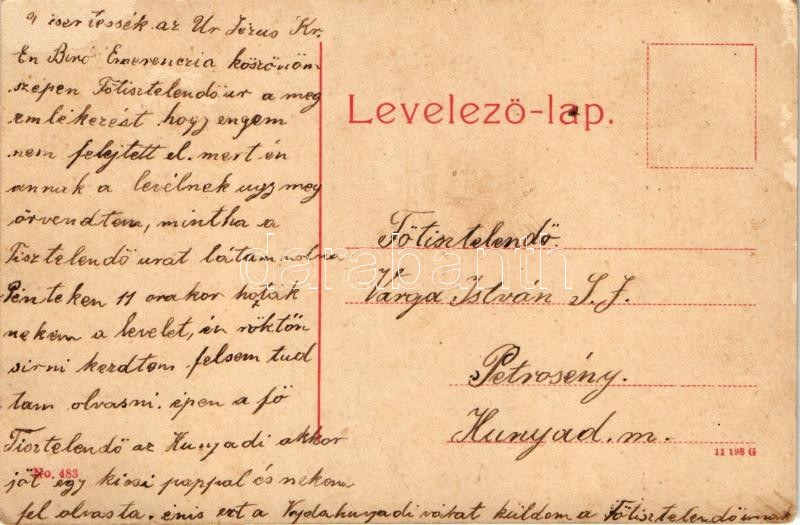 Dicsertessék az Ur Jézus Kr.
En Biró Emerenczia köszönöm
szepen Főtisztelendő ur a meg
emlékezést hogy engem
nem felejtett el. mert én
annak a levélnek ugy meg
örvendtem, mintha a
Tisztelendő urat látam volna
Pénteken 11 orakor hozták
nekem a levelet, én röktön
sirni kezdtem felsem tud
tam olvasni. épen a fő
Tisztelendő az Hunyadi akkor
jöt egy kicsi pappal és nekem
fel olvasta. énis ezt a Vajdahunyadi várat küldom a Főtisztelendő urnak
Levelező-lap.
Főtisztelendő.
Varga István S. J.
Petrosény.
Hunyad. m.
No. 483
11 198 G
darabanth